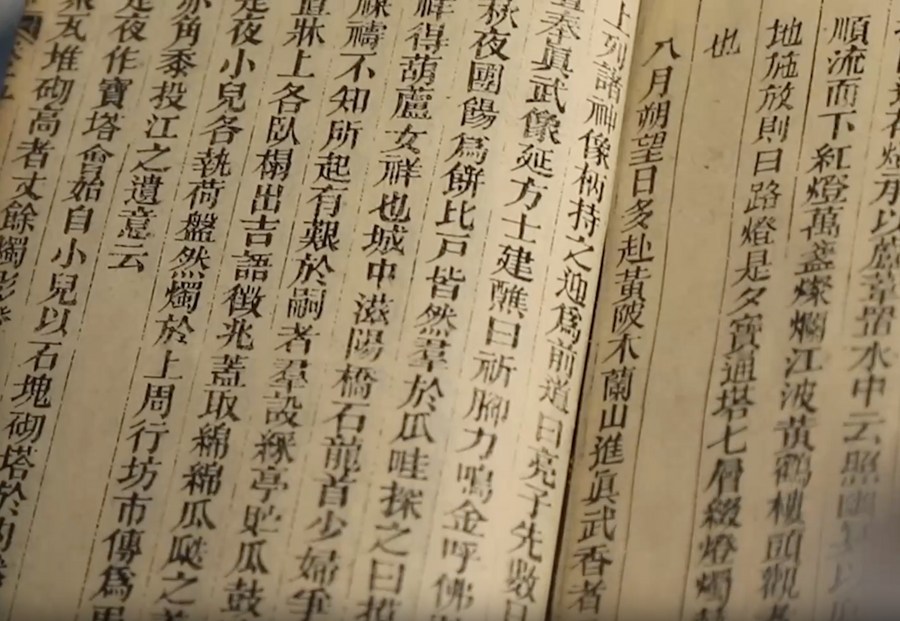 順流而下紅燈萬盞燦爛江波黃鶴樓頭觀者
地施放則曰路燈是夕寶通塔七層綴燈燭
也
八月朔望日多赴黃陂木蘭山進眞武香者
上列諸神像柄持之迎爲前道曰亮子先數日
奉眞武像延方士建醮曰祈腳力鳴金呼佛
秋夜團餳爲餠比戶皆然羣於瓜畦探之曰
祥得葫蘆女祥也城中滋陽橋石前首少婦
禱不知所起有艱於嗣者羣設綵亭貯瓜鼓
置牀上各臥榻出吉語徵兆蓋取綿綿瓜瓞之
是夜小兒各執荷盤然燭於上周行坊市傳爲
角黍投江之遺意云
是夜作寶塔會始自小兒以石塊砌塔於
瓦堆砌高者丈餘燭影